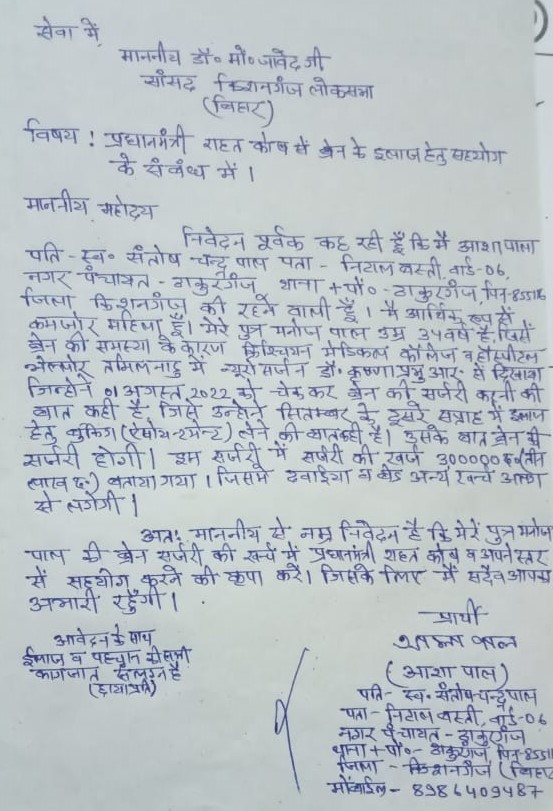 सेवा में,
माननीय डॉ० मो० जावेद जी
सांसद किशनगंज लोकसभा
(बिहार)
विषय : प्रधानमंत्री राहत कोष से ब्रेन के इलाज हेतु सहयोग
के संबंध में ।
माननीय महोदय
निवेदन पूर्वक कह रही हूँ कि मैं आशा पाल
पति - स्व० संतोष चन्द्र पाल पता - निटाल बस्ती, वार्ड-06,
नगर पंचायत - ठाकुरगंज, थाना + पो० - ठाकुरगंज, पिन-855116
जिला किशनगंज की रहने वाली हूँ । मैं आर्थिक रूप से
कमजोर महिला हूँ। मेरे पुत्र मनोज पाल उम्र 34 वर्ष है, जिसे
ब्रेन की समस्या के कारण क्रिश्चियन मेडिकल कॉलेज व हॉस्पीटल
भेल्लोर तमिलनाडु में न्यूरो सर्जन डॉ० कृष्णा प्रभु आर० से दिखाया
जिन्होंने 01 अगस्त, 2022 को चेक कर ब्रेन की सर्जरी करने की
बात कही है जिसे उन्होंने सितम्बर के दूसरे सप्ताह में इलाज
हेतु बुकिंग लेने की बात कही है। उसके बाद ब्रेन की
सर्जरी होगी। इस सर्जरी में सर्जरी की खर्च 300000 रु (तीन
लाख रु०) बताया गया । जिसमें दवाईयां व बेड अन्य खर्च अलग
से लगेगी ।
अतः माननीय से नम्र निवेदन है कि मेरे पुत्र मनोज
पाल की ब्रेन सर्जरी की खर्च में प्रधानमंत्री राहत कोष व अपने स्तर
से सहयोग करने की कृपा करें। जिसके लिए मैं सदैव आपका
आभारी रहूँगी ।
आवेदन के साथ
ईलाज व पहचान की सभी
कागजात संलग्न है
(छायाप्रति)
प्रार्थी
आशा पाल
(आशा पाल)
पति - स्व० संतोष चन्द्र पाल
पता - निटाल बस्ती, वार्ड-06
नगर पंचायत - ठाकुरगंज
थाना + पो० - ठाकुरगंज, पिन-8551
जिला - किशनगंज (बिहार
मोबाईल - 8986409487